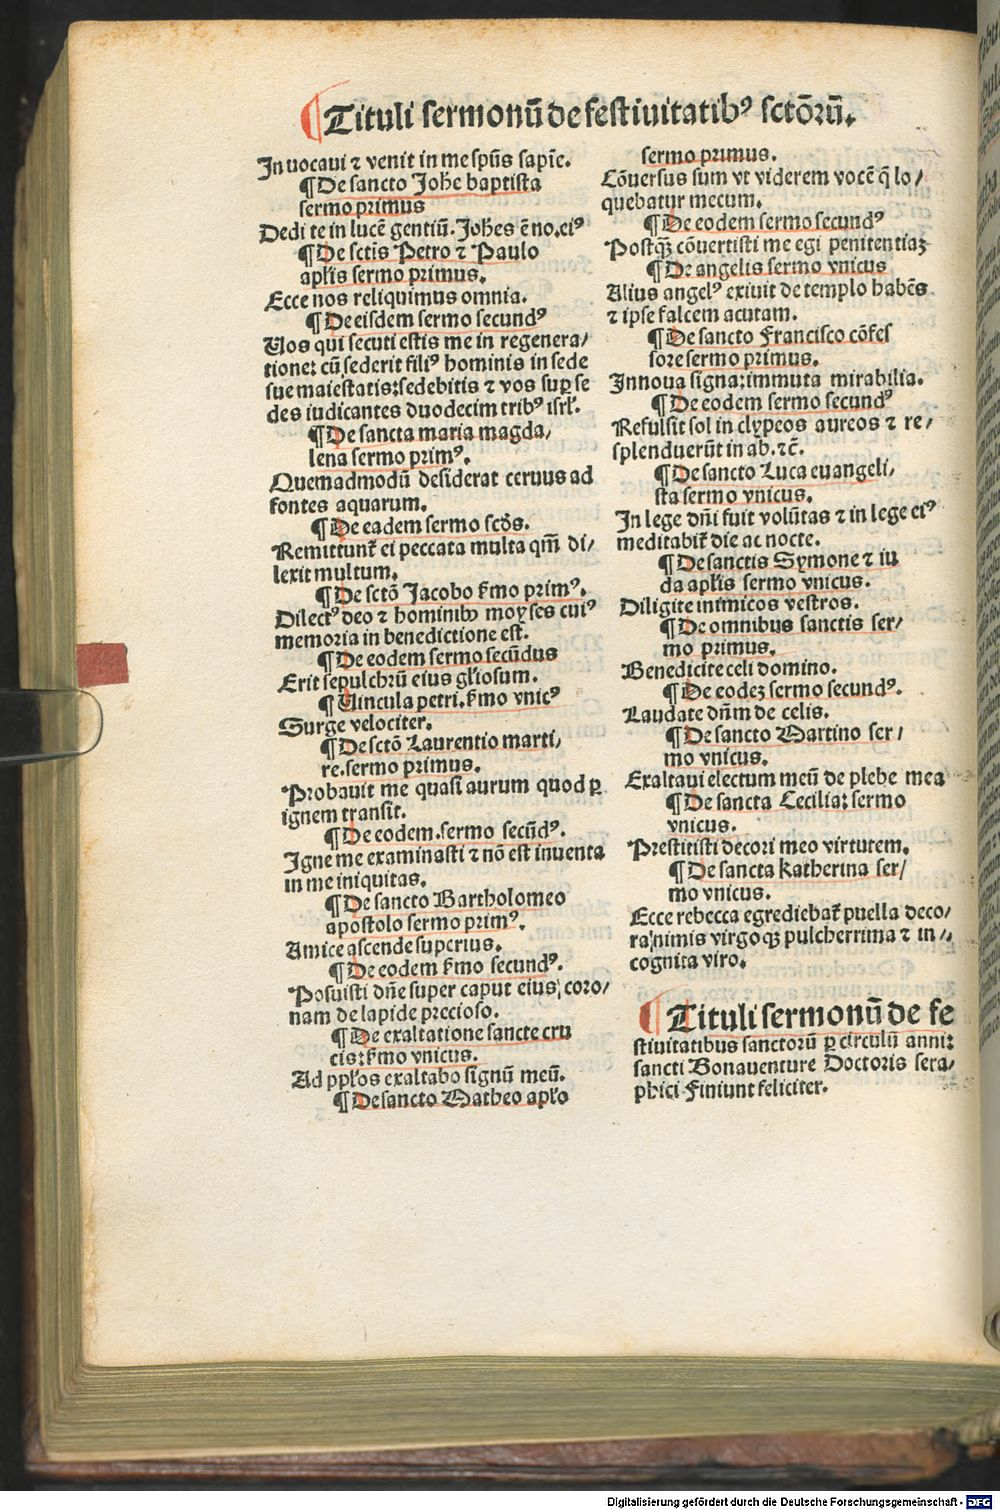 ¶Tituli sermonū de festiuitatibꝰ sctōꝝū.
Inuocaui ⁊ venit in me spūs sapīe.
¶De sancto Johē baptista
sermo primus
Dedi te in lucē gentiū. Joh̄es ē no. eiꝰ
¶De sctīs Petro ⁊ Paulo
apl̄is sermo primus.
Ecce nos reliquimus omnia.
¶De eisdem sermo secundꝰ
Uos qui secuti estis me in regenera/
tione: cū sederit filiꝰ hominis in sede
sue maiestatis: sedebitis ⁊ vos suꝑ se
des iudicantes duodecim tribꝰ isrl̄.
¶De sancta maria magda/
lena sermo primꝰ.
Quemadmodū desiderat ceruus ad
fontes aquarum.
¶De eadem sermo scd̄s.
Remittunt̄ ei peccata multa qm̄ di/
lexit multum.
¶De sctō Jacobo ẜmo primꝰ.
Dilectꝰ deo ⁊ hominibꝫ moyses cuiꝰ
memoria in benedictione est.
¶De eodem sermo secūdus
Erit sepulchrū eius gl̄iosum.
¶Uincula petri. ẜmo vnicꝰ
Surge velociter.
¶De sctō Laurentio marti/
re. sermo primus.
Probauit me quasi aurum quod ꝑ
ignem transit.
¶De eodem. sermo secūdꝰ.
Igne me examinasti ⁊ nō est inuenta
in me iniquitas.
¶De sancto Bartholomeo
apostolo sermo primꝰ.
Amice ascende superius.
¶De eodem ẜmo secundꝰ.
Posuisti dn̄e super caput eius coro/
nam de lapide precioso.
¶De exaltatione sancte cru
cis: ẜmo vnicus.
Ad ppl̄os exaltabo signū meū.
¶De sancto Matheo apl̄o
sermo primus.
Cōuersus sum vt viderem vocē q̄ lo/
quebatur mecum.
¶De eodem sermo secundꝰ
Postqꝫ cōuertisti me egi penitentiaꝫ
¶De angelis sermo vnicus
Alius angelꝰ exiuit de templo habēs
⁊ ipse falcem acutam.
¶De sancto Francisco cōfes
sore sermo primus.
Innoua signa: immuta mirabilia.
¶De eodem sermo secundꝰ
Refulsit sol in clypeos aureos ⁊ re/
splenduerūt in ab. ⁊c̄.
¶De sancto Luca euangeli/
sta sermo vnicus.
In lege dn̄i fuit volūtas ⁊ in lege eiꝰ
meditabit̄ die ac nocte.
¶De sanctis Symone ⁊ iu
da apl̄is sermo vnicus.
Diligite inimicos vestros.
¶De omnibus sanctis ser/
mo primus.
Benedicite celi domino.
¶De eodeꝫ sermo secundꝰ.
Laudate dn̄m de celis.
¶De sancto Martino ser/
mo vnicus.
Exaltaui electum meū de plebe mea
¶De sancta Cecilia: sermo
vnicus.
Prestitisti decori meo virtutem.
¶De sancta katherina ser/
mo vnicus.
Ecce rebecca egrediebat̄ puella deco/
ra nimis virgoqꝫ pulcherrima ⁊ in/
cognita viro.
¶Tituli sermonū de fe
stiuitatibus sanctorū ꝑ circulū anni:
sancti Bonauenture Doctoris sera/
phici Finiunt feliciter.
Digitalisierung gefördert durch die Deutsche Forschungsgemeinschaft - DFG